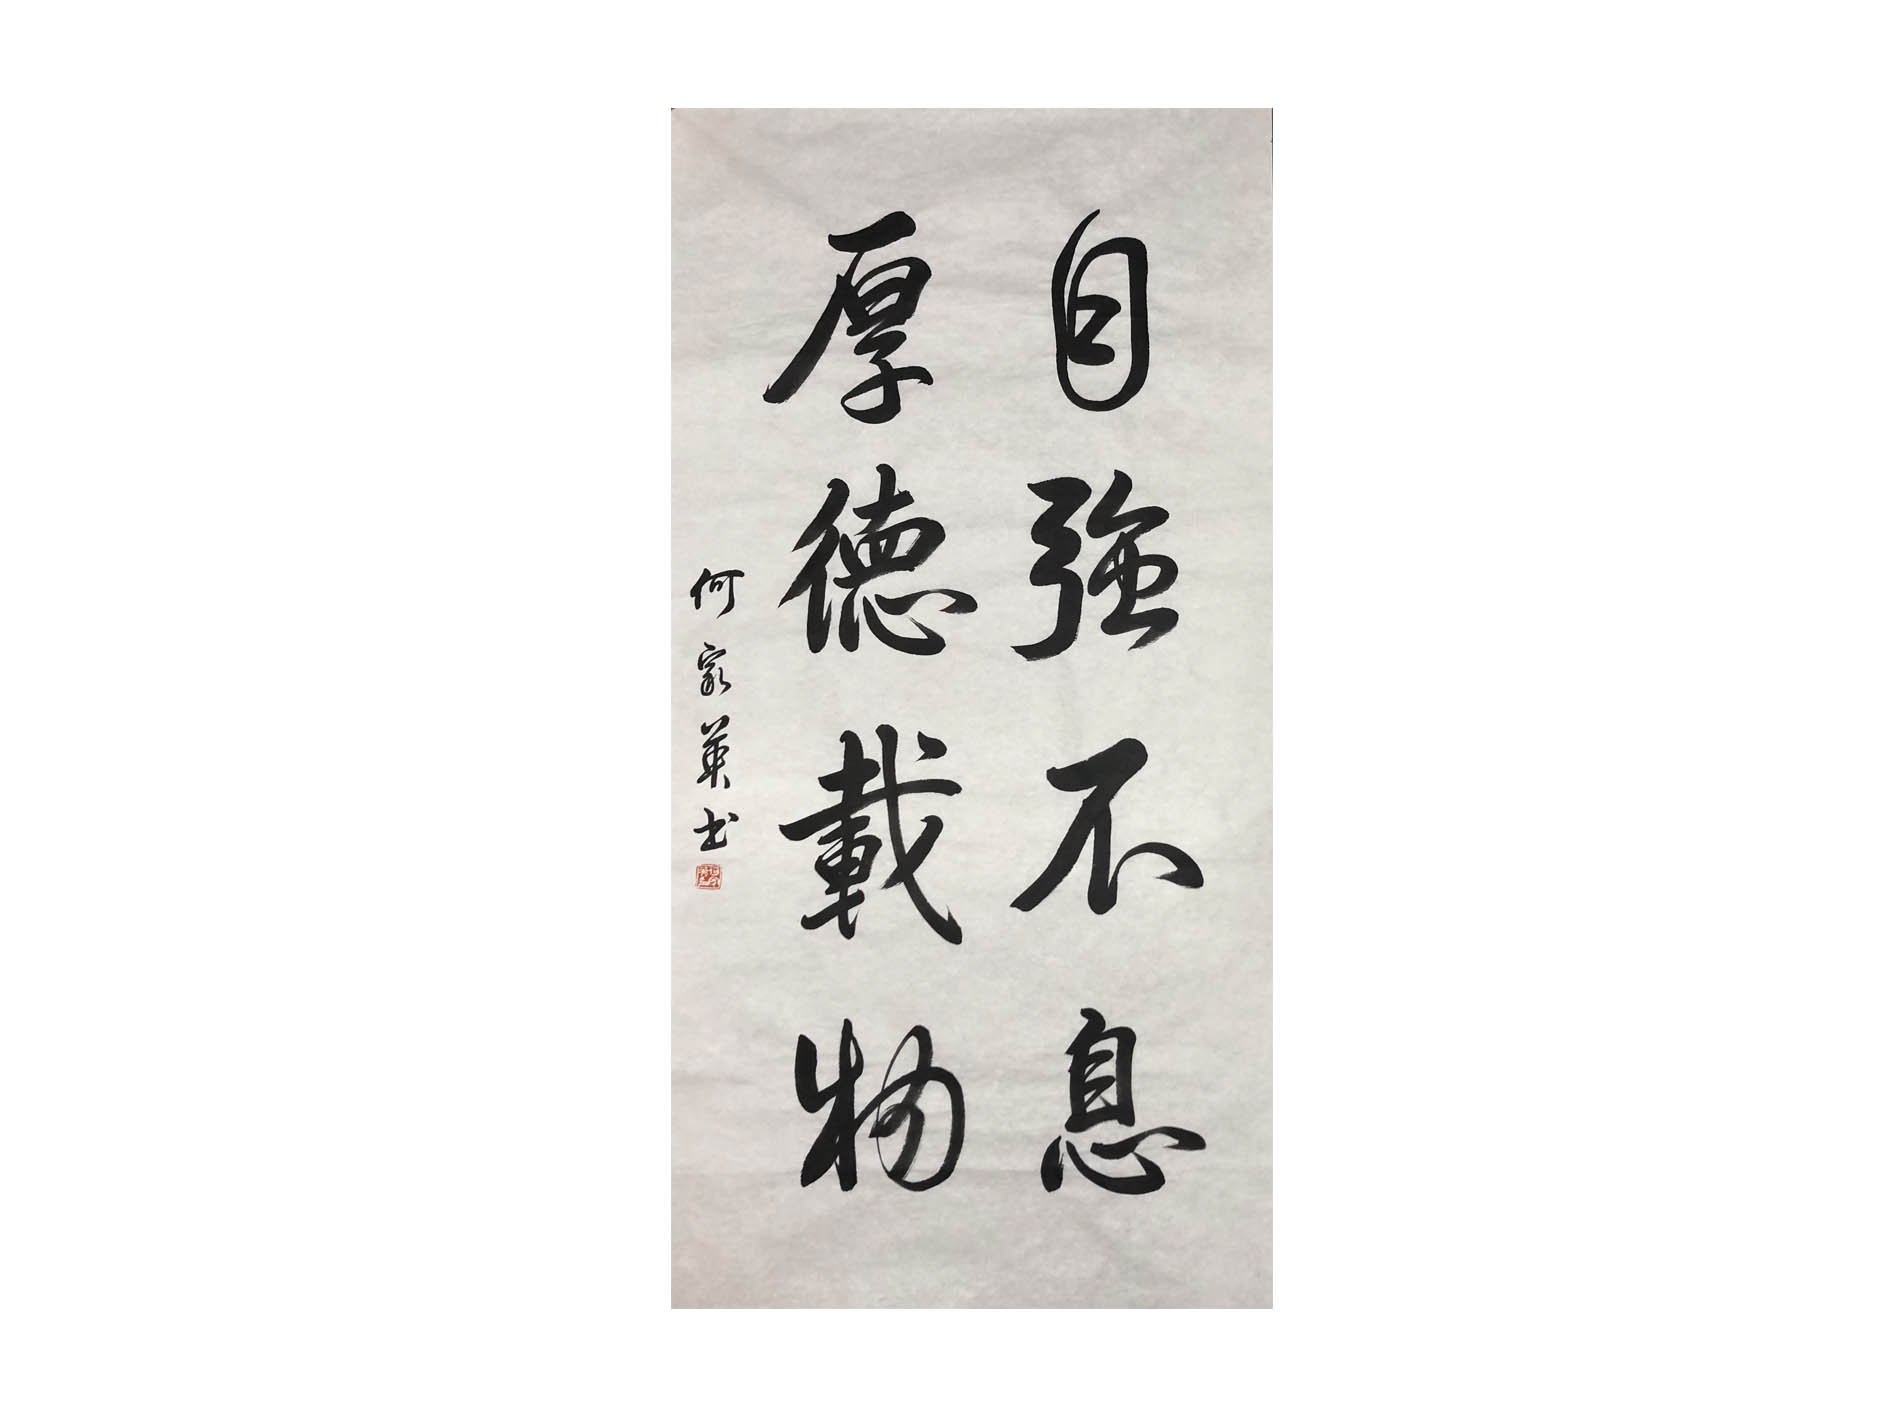 自強不息
厚德載物
何家英书